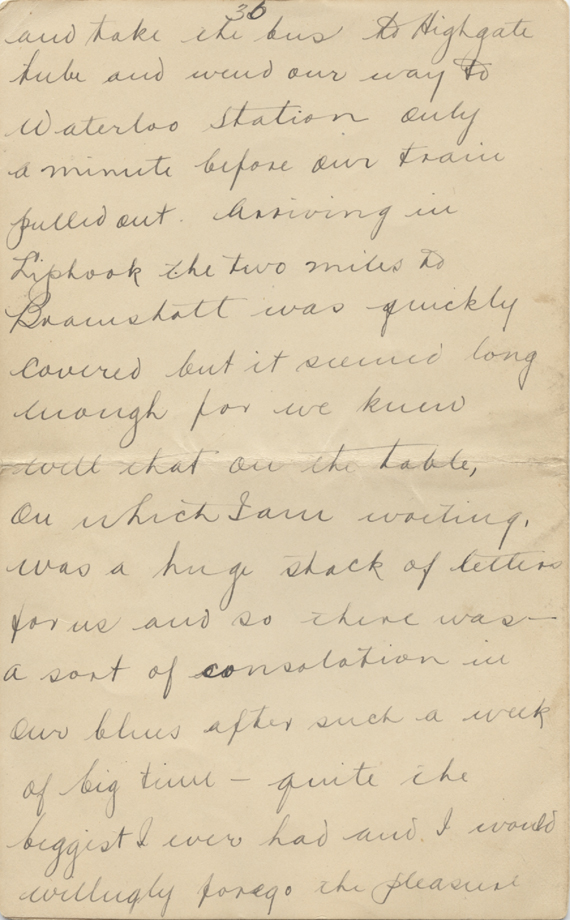 36
and take the bus to Highgate
tube and wend our way to
Waterloo station only
a minute before our train
pulled out. Arriving in
Liphook the two miles to
Bramshott was quickly
covered but it seemed long
enough for we knew
well that on the table,
on which I am writing,
was a huge stack of letters
for us and so there was—
a sort of consolation in
our blues after such a week
of big time — quite the
biggest I ever had and I would
willingly forego the pleasure